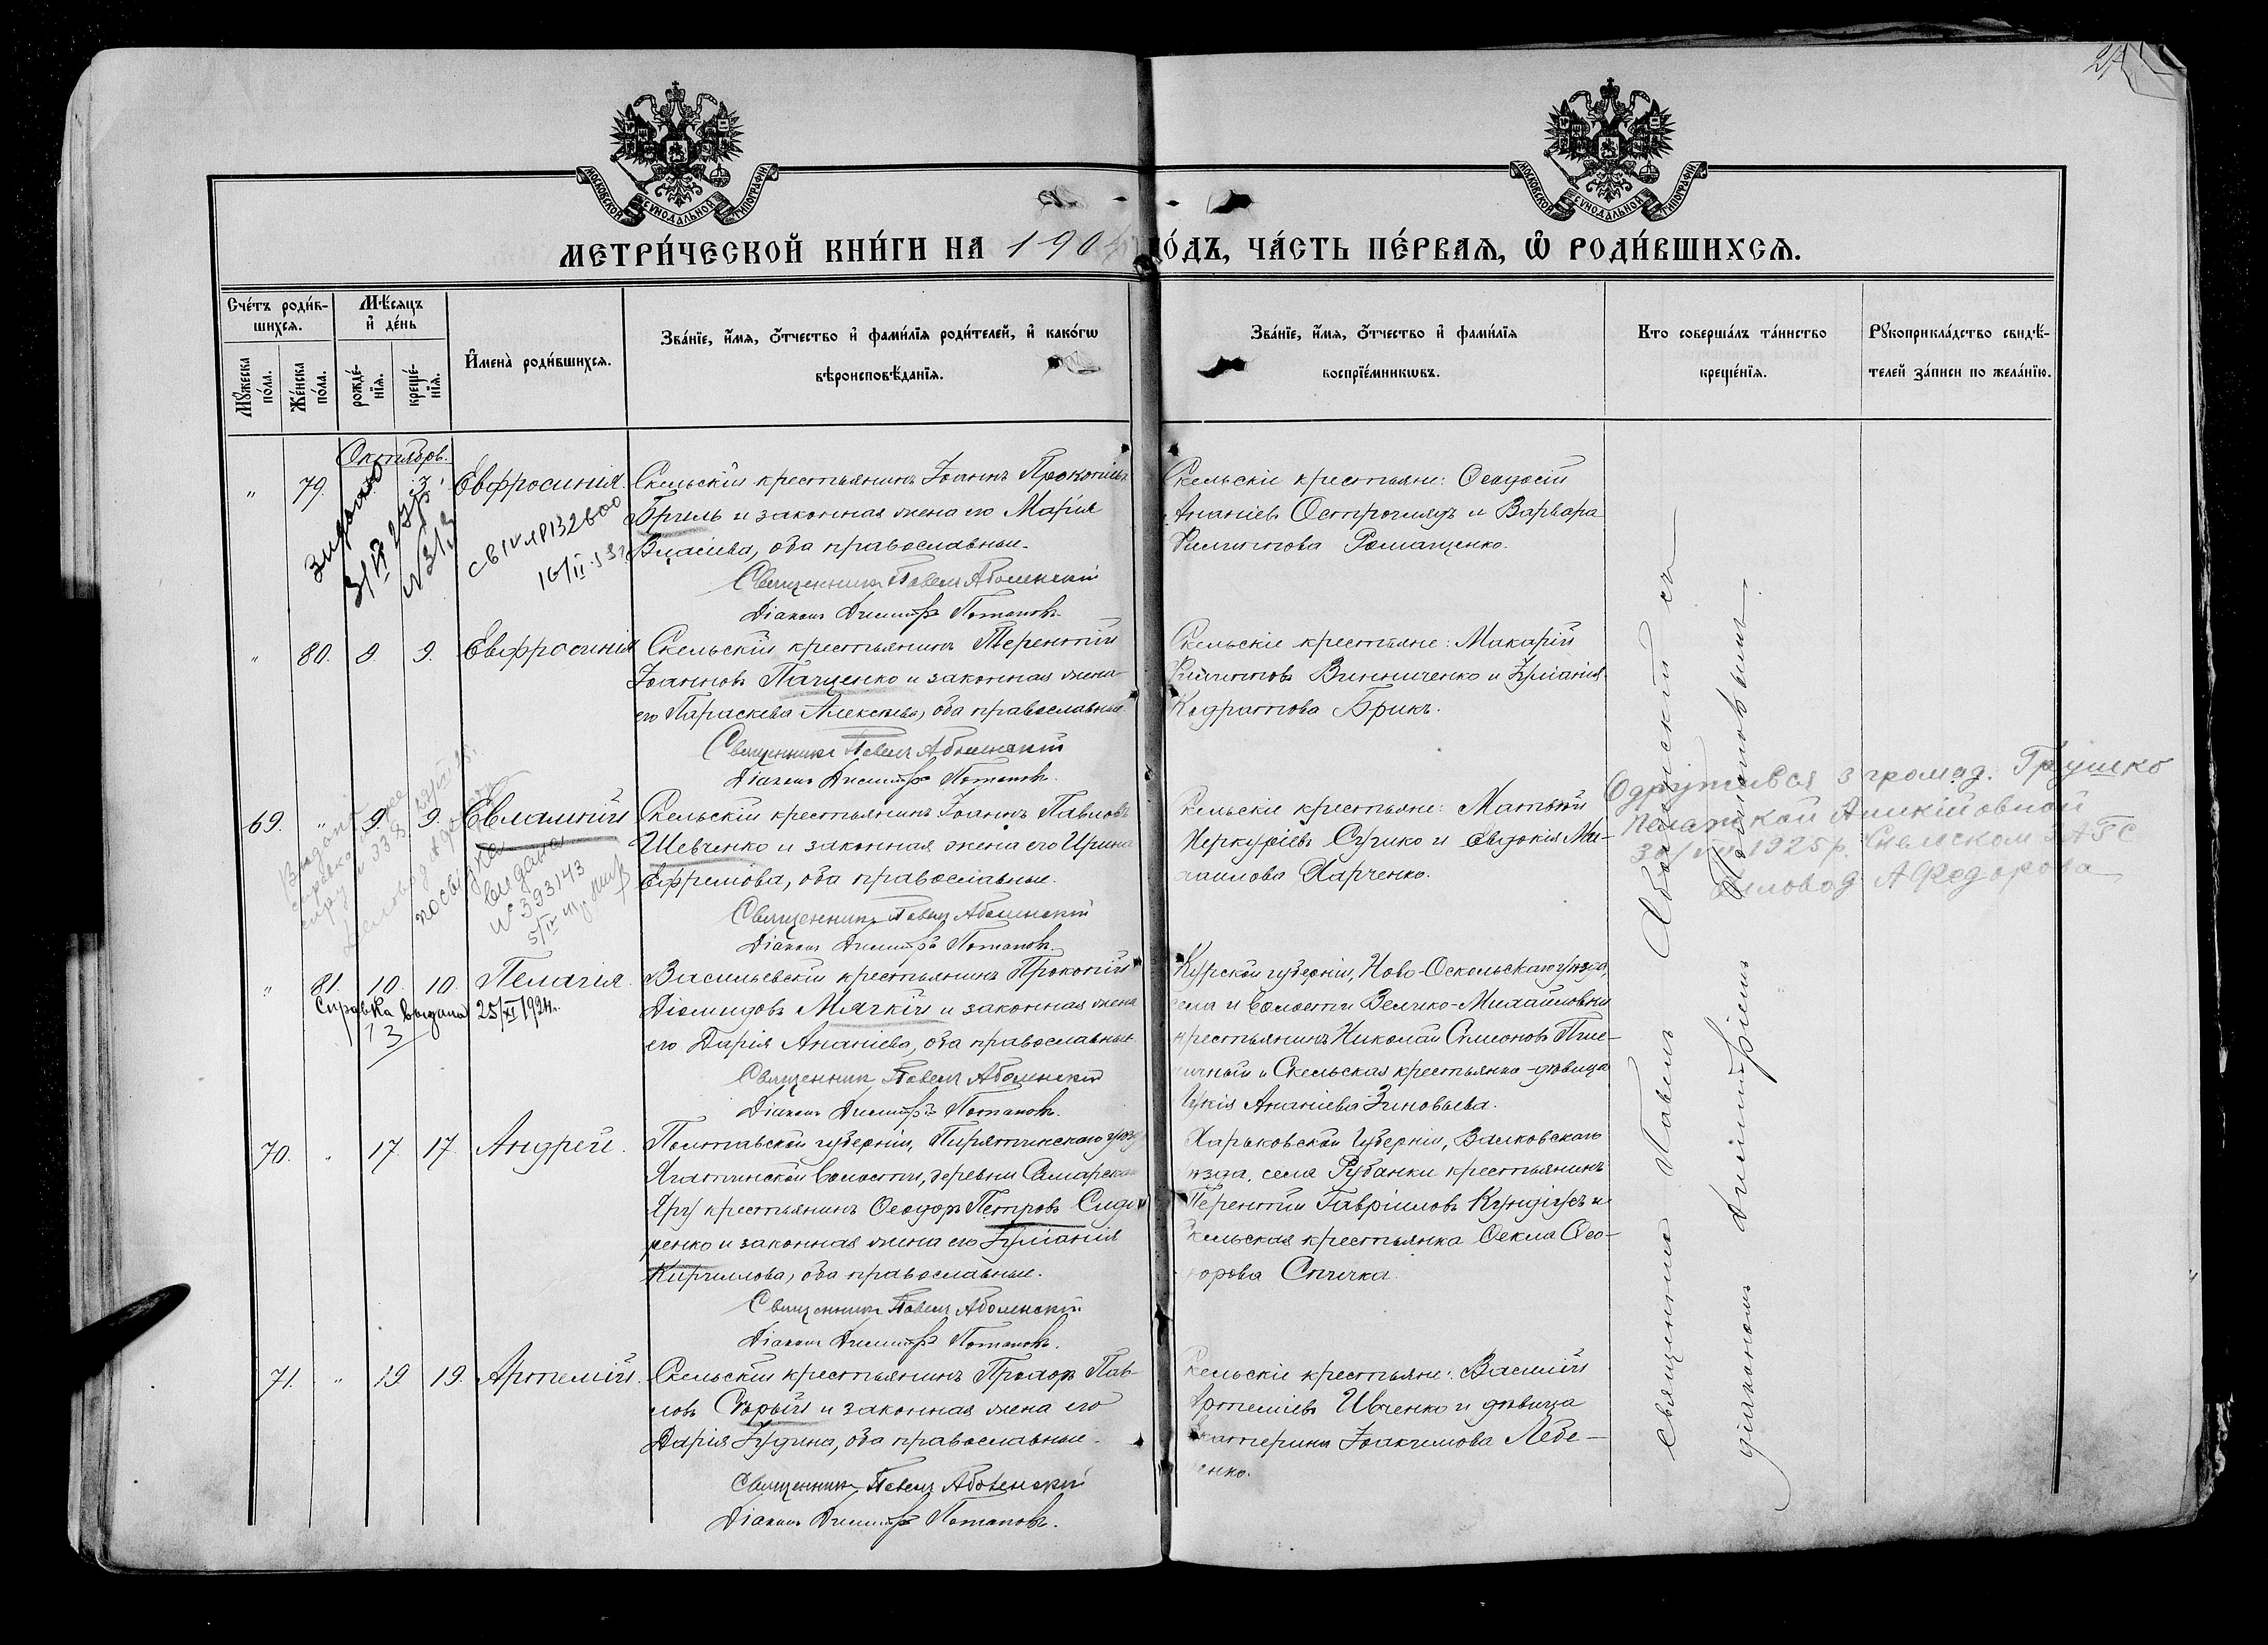 МОСКОВСКОЙ СѴНОДАЛЬНОЙ ТИПОГРАФІИ
МОСКОВСКОЙ СѴНОДАЛЬНОЙ ТИПОГРАФІИ
МЕТРИ́ЧЕСКОЙ КНИ́ГИ НА 190 ГО́ДЪ, ЧА́СТЬ ПЕ́РВАЯ, Ѡ РОДИ́ВШИХСѦ.
Сче́тъ роди́вшихсѧ.
Мꙋ́жеска по́ла.
Же́нска по́ла.
Мѣ́сѧцъ и҆ де́нь
рожде́нїѧ.
креще́нїѧ.
И҆мена̀ роди́вшихсѧ.
Зва́нїе, и҆́мѧ, ѻ҆́тчество и҆ фами́лїѧ роди́телей, и҆ како́гѡ
вѣроисповѣ́данїѧ.
Зва́нїе, и҆́мѧ, ѻ҆́тчество и҆ фами́лїѧ
воспрїе́мникѡвъ.
Кто соверша́лъ та́инство
креще́нїѧ.
Рꙋкоприкла́дство свидѣ́-
телей за́писи по жела́нїю.
Октябрь.
" 79. 3. Евфросинія.
Скельскій крестьянинъ Іоаннъ Прокопіевъ
Бриль и законная жена его Марія
Власіева, оба православные.
Священникъ Павелъ Аболенскій
Діаконъ Димитрій Потаповъ.
Скельскіе крестьяне: Ѳеодосій
Ананіевъ Остроглядъ и Варвара
Филиппова Ромащенко.
" 80. 8 9. Евфросинія
Скельскій крестьянинъ Терентій
Іоанновъ Пащенко и законная жена
его Параскева Алексѣева, оба православные.
Священникъ Павелъ Аболенскій
Діаконъ Димитрій Потаповъ.
Скельскіе крестьяне: Макарій
Филипповъ Винниченко и Іуліанія
Кодратова Брикъ.
69. " 9. 9. Евлампій
Скельскій крестьянинъ Іоаннъ Павловъ
Шевченко и законная жена его Ирина
Ефремова, оба православные.
Священникъ Павелъ Аболенскій
Діаконъ Димитрій Потаповъ.
Скельскіе крестьяне: Матѳей
Меркуріевъ Сушко и Евдокія Ми-
хаилова Харченко.
Одружився з громад. Грушко
30/VII 1925 р.
А Федорова
выдана
№ 393143
" 81. 10. 10. Пелагія.
Справка выдана 25/XI 1924 г.
13
Васильевскій крестьянинъ Прокопій
Діомидовъ Мягкій и законная жена
его Дарія Ананіева, оба православные.
Священникъ Павелъ Аболенскій
Діаконъ Димитрій Потаповъ.
Курской губерніи, Ново-Оскольскаго уѣзда,
села и волости Велико-Михайловки
крестьянинъ Николай Симеоновъ Пше-
ничный и Скельская крестьянка-дѣвица
Лукія Ананіева Зиновьева.
70. " 17 17. Андрей.
Полтавской губерніи, Пирятинскаго уѣзда
волости, деревни
крестьянинъ Ѳеодоръ Петровъ Сидо-
ренко и законная жена его Іуліанія
Кириллова, оба православные.
Священникъ Павелъ Аболенскій
Діаконъ Димитрій Потаповъ.
Харьковской губерніи, Валковскаго
уѣзда, села Рубанки крестьянинъ
Терентій Гавріиловъ и
Скельская крестьянка Ѳекла Ѳео-
дорова Спичка.
71. " 19 19. Артемій.
Скельскій крестьянинъ Прохоръ Пав-
ловъ Сѣрый и законная жена его
Дарія Іудина, оба православные.
Священникъ Павелъ Аболенскій
Діаконъ Димитрій Потаповъ.
Скельскіе крестьяне: Василій
Артеміевъ Ивченко и дѣвица
Екатерина Іоакимова Лебе-
денко.
Священникъ Павелъ Аболенскій съ
діакономъ Димитріемъ Потаповымъ